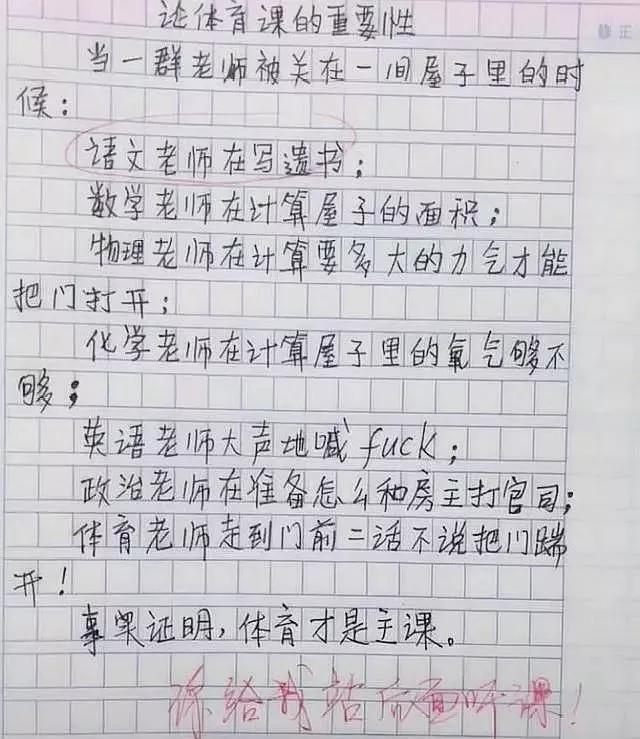 论体育课的重要性
修正
当一群老师被关在一间屋子里的时
候:
语文老师在写遗书;
数学老师在计算屋子的面积;
物理老师在计算要多大的力气才能
把门打开;
化学老师在计算屋子里的氧气够不
够;
英语老师大声地喊fuck;
政治老师在准备怎么和房主打官司;
体育老师走到门前二话不说把门踹
开!
事实证明,体育才是主课。
你给我站后面听课!